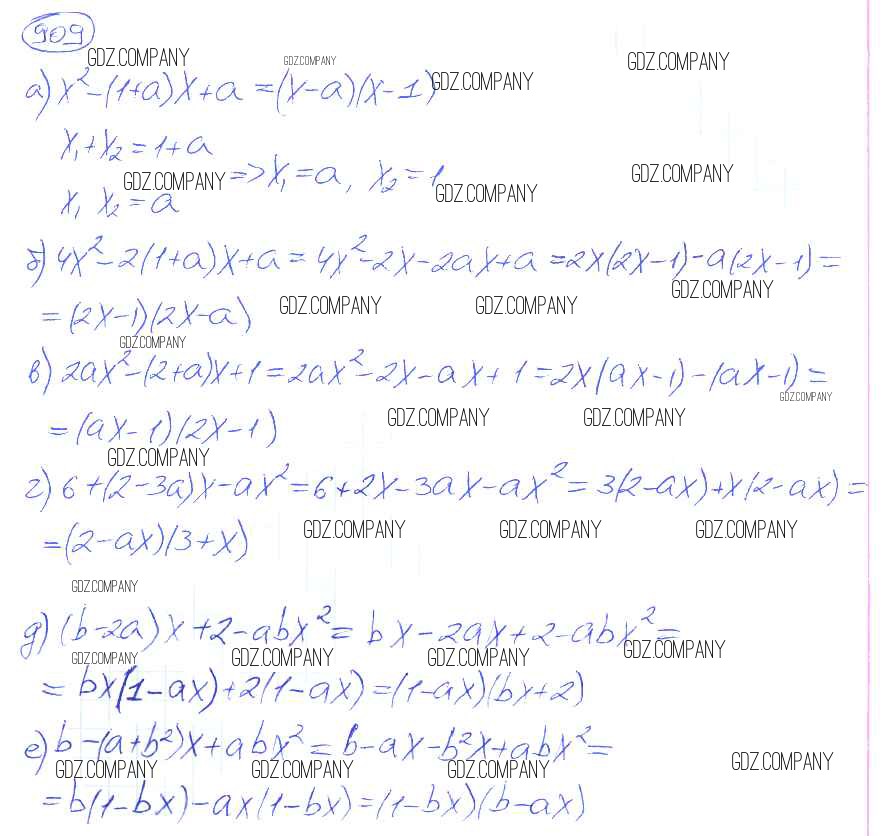 909
GDZ.COMPANY GDZ.COMPANY GDZ.COMPANY GDZ.COMPANY
а) x² - (1+a)x + a = (x-a)(x-1)
x₁ + x₂ = 1+a
GDZ.COMPANY => x₁ = a, x₂ = 1 GDZ.COMPANY GDZ.COMPANY
x₁ x₂ = a
б) 4x² - 2(1+a)x + a = 4x² - 2x - 2ax + a = 2x(2x-1) - a(2x-1) =
GDZ.COMPANY GDZ.COMPANY GDZ.COMPANY
= (2x-1)(2x-a)
GDZ.COMPANY
в) 2ax² - (2+a)x + 1 = 2ax² - 2x - ax + 1 = 2x(ax-1) - (ax-1) =
GDZ.COMPANY GDZ.COMPANY GDZ.COMPANY
= (ax-1)(2x-1)
GDZ.COMPANY
г) 6 + (2-3a)x - ax² = 6 + 2x - 3ax - ax² = 3(2-ax) + x(2-ax) =
GDZ.COMPANY GDZ.COMPANY GDZ.COMPANY
= (2-ax)(3+x)
GDZ.COMPANY
д) (b-2a)x + 2 - abx² = bx - 2ax + 2 - abx² =
GDZ.COMPANY GDZ.COMPANY GDZ.COMPANY GDZ.COMPANY
= bx(1-ax) + 2(1-ax) = (1-ax)(bx+2)
е) b - (a+b²)x + abx² = b - ax - b²x + abx² =
GDZ.COMPANY GDZ.COMPANY GDZ.COMPANY GDZ.COMPANY
= b(1-bx) - ax(1-bx) = (1-bx)(b-ax)